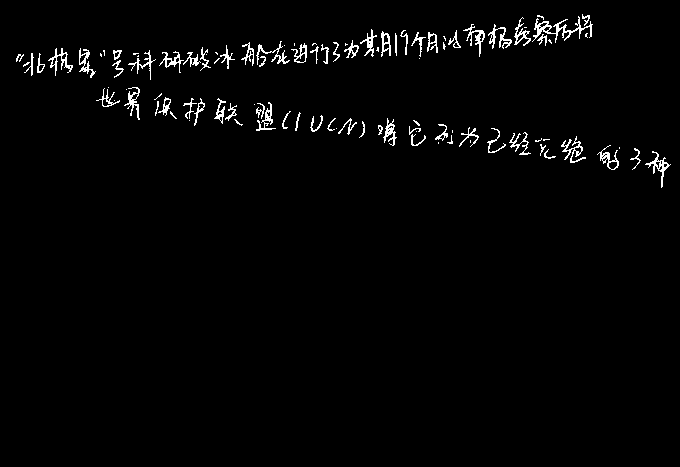 "北极星"号科研破冰船在进行了为其月19个月的神极考察后将
世界保护联盟(IUCN)将它列为已经灭绝的3种